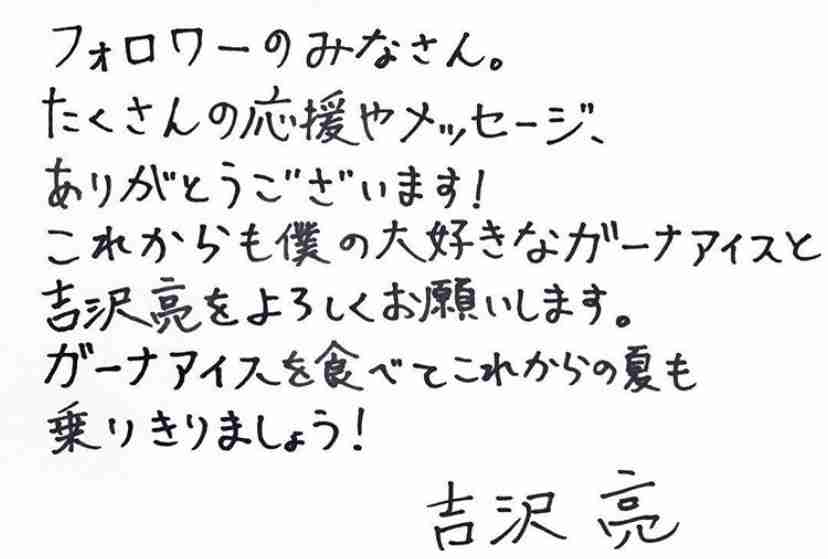 フォロワーのみなさん。
たくさんの応援やメッセージ、
ありがとうございます!
これからも僕の大好きなガーナアイスと
吉沢亮をよろしくお願いします。
ガーナアイスを食べてこれからの夏も
乗りきりましょう!
吉沢 亮